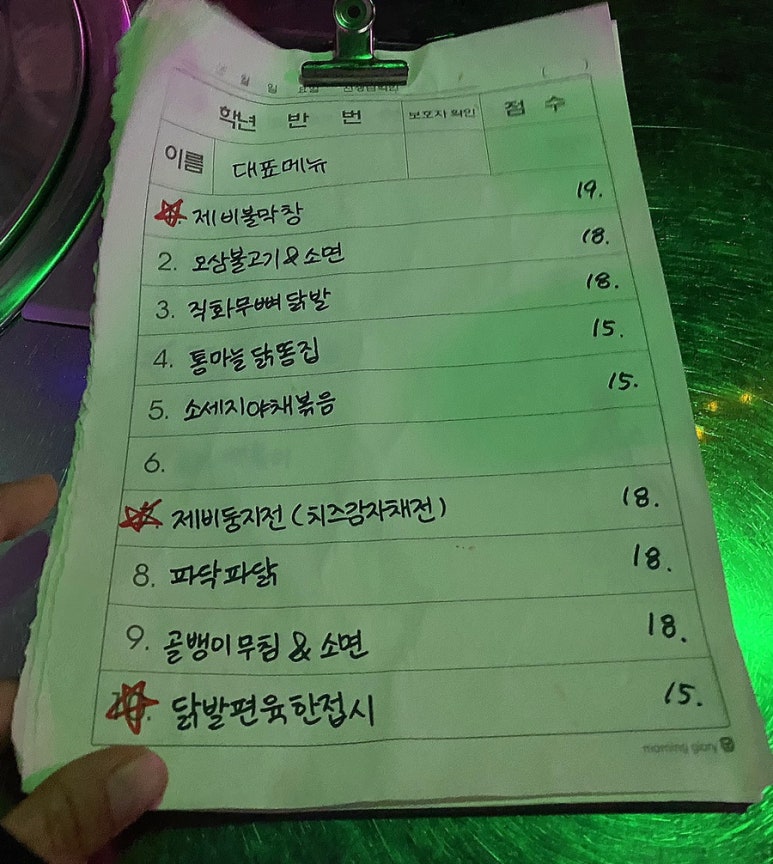 월 일 요일
학년 반 번 보호자 확인 점 수
이름 대표메뉴
제비불막창 19.
2. 오삼불고기&소면 18.
3. 직화무뼈닭발 18.
4. 통마늘닭똥집 15.
5. 소세지야채볶음 15.
6.
제비둥지전 (치즈감자채전) 18.
8. 파닥파닭 18.
9. 골뱅이무침 & 소면 18.
닭발편육한접시 15.
morning glory